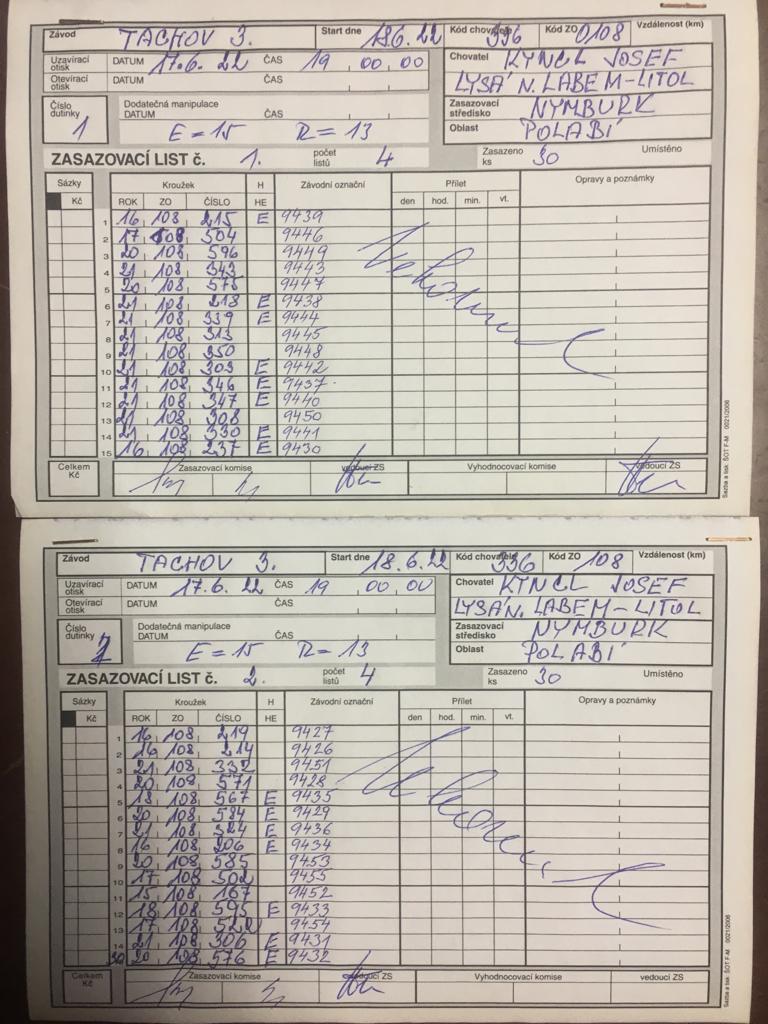 Závod TACHOV 3. Start dne 18.6.22 Kód chovatele 336 Kód ZO 0108 Vzdálenost (km)
Uzavírací otisk DATUM 17.6.22 ČAS 19 00 00 Chovatel KYNCL JOSEF
Otevírací otisk DATUM ČAS LYSÁ N. LABEM-LITOL
Číslo dutinky 1 Dodatečná manipulace DATUM ČAS Zasazovací středisko NYMBURK
E=15 R=13 Oblast POLABÍ
ZASAZOVACÍ LIST č. 1. počet listů 4 Zasazeno ks 30 Umístěno
Sázky Kroužek H Závodní označní Přílet Opravy a poznámky
Kč ROK ZO ČÍSLO HE den hod. min. vt.
1 16 108 215 E 9439
2 17 108 504 9446
3 20 108 596 9449
4 21 108 343 9443
5 20 108 575 9447
6 21 108 218 E 9438
7 21 108 339 E 9444
8 21 108 313 9445
9 21 108 350 9448
10 21 108 303 E 9442
11 21 108 346 E 9437
12 21 108 347 E 9440
13 21 108 308 9450
14 21 108 330 E 9441
15 16 108 237 E 9430
Celkem Kč Zasazovací komise vedoucí ZS Vyhodnocovací komise vedoucí ZS
Sazba a tisk: ŠOT F-M 0021/2006
Závod TACHOV 3. Start dne 18.6.22 Kód chovatele 336 Kód ZO 108 Vzdálenost (km)
Uzavírací otisk DATUM 17.6.22 ČAS 19 00 00 Chovatel KYNCL JOSEF
Otevírací otisk DATUM ČAS LYSÁ N. LABEM-LITOL
Číslo dutinky 2 Dodatečná manipulace DATUM ČAS Zasazovací středisko NYMBURK
E=15 R=13 Oblast POLABÍ
ZASAZOVACÍ LIST č. 2. počet listů 4 Zasazeno ks 30 Umístěno
Sázky Kroužek H Závodní označní Přílet Opravy a poznámky
Kč ROK ZO ČÍSLO HE den hod. min. vt.
1 16 108 219 9427
2 16 108 214 9426
3 21 108 332 9451
4 20 108 571 9428
5 18 108 567 E 9435
6 20 108 584 E 9429
7 21 108 324 E 9436
8 16 108 206 E 9434
9 20 108 585 9453
10 17 108 502 9455
11 15 108 167 9452
12 18 108 595 E 9433
13 17 108 522 9454
14 21 108 306 E 9431
30 20 108 576 E 9432
Celkem Kč Zasazovací komise vedoucí ZS Vyhodnocovací komise vedoucí ZS
Sazba a tisk: ŠOT F-M 0021/2006